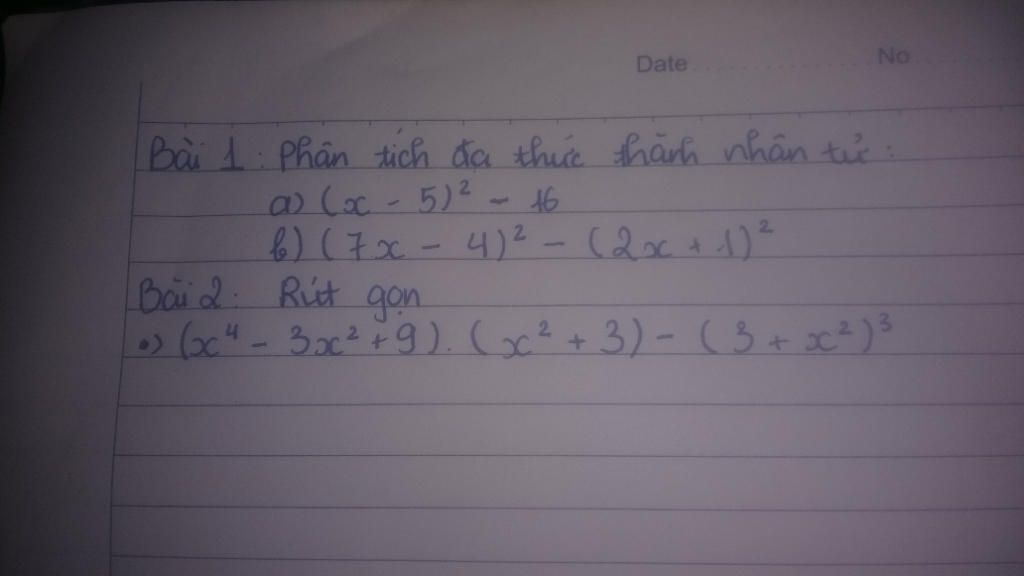 Date No
Bài 1: Phân tích đa thức thành nhân tử:
a) (x - 5)² - 16
b) (7x - 4)² - (2x + 1)²
Bài 2: Rút gọn
•) (x⁴ - 3x² + 9). (x² + 3) - (3 + x²)³